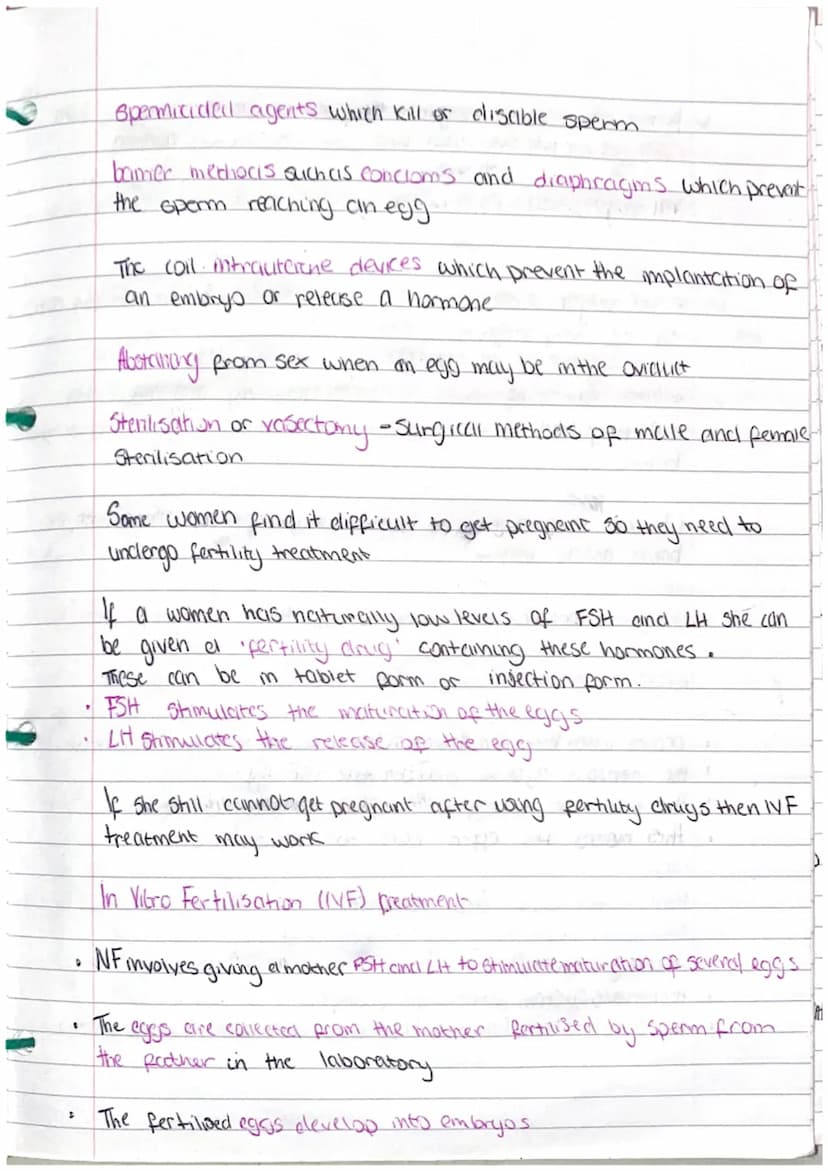 Spermicidal agents which kill or disable sperm
barrier methods such as condoms and diaphragms which prevent
the sperm reaching an egg
The coil intrauterine devices which prevent the implantation of
an embryo or release a hormone
Abstaining from sex when an egg may be in the oviduct
Sterilisation or vasectomy - surgical methods of male and female
sterilisation
Some women find it difficult to get pregnant so they need to
undergo fertility treatment
If a women has naturally low levels of FSH and LH she can
be given a 'fertility drug' containing these hormones.
These can be in tablet form or injection form.
• FSH stimulates the maturation of the eggs
• LH stimulates the release of the egg
If she still cannot get pregnant after using fertility drugs then IVF
treatment may work
In Vitro Fertilisation (IVF) treatment
• IVF involves giving a mother FSH and LH to stimulate maturation of several eggs
• The eggs are collected from the mother fertilised by sperm from
the father in the laboratory
• The fertilised eggs develop into embryos